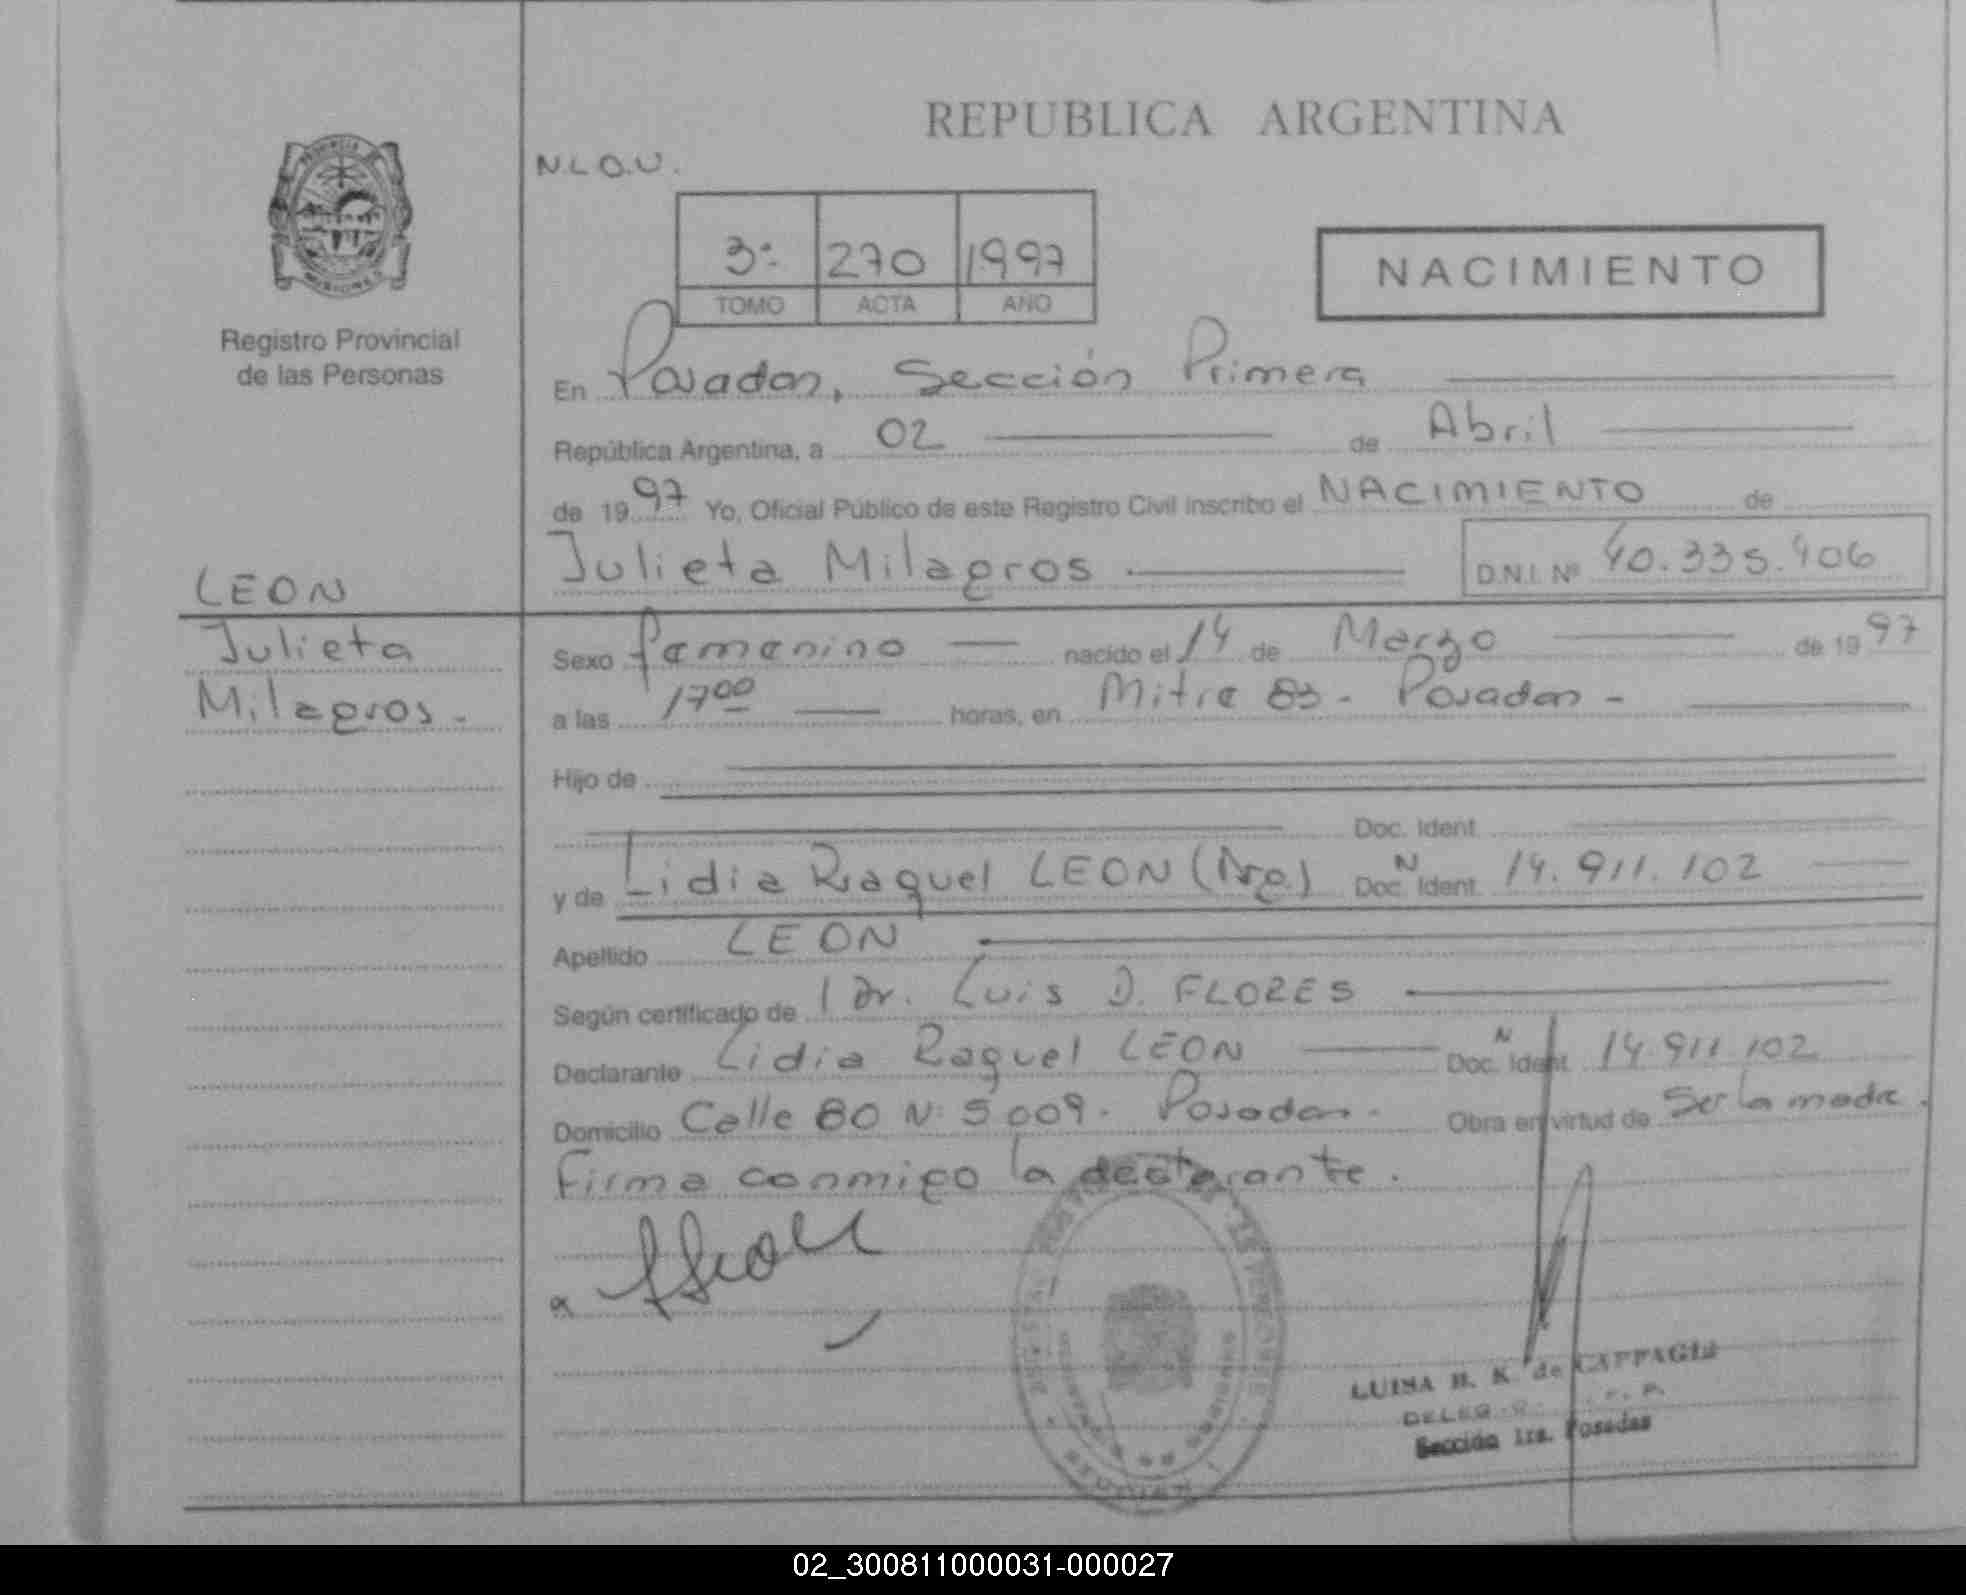 REPUBLICA ARGENTINA
N.L.O.U.
3º 270 1997
TOMO ACTA AÑO
NACIMIENTO
Registro Provincial
de las Personas
En Posadas, Sección Primera
República Argentina, a 02 de Abril
de 1997 Yo, Oficial Público de este Registro Civil inscribo el NACIMIENTO de
Julieta Milagros D.N.I. Nº 40.335.406
LEON
Julieta
Milagros.-
Sexo femenino nacido el 14 de Marzo de 1997
a las 17:00 horas, en Mitre 83 - Posadas -
Hijo de
Doc. Ident.
y de Lidia Raquel LEON (Arg.) Doc. N Ident. 14.911.102
Apellido LEON
Según certificado de l Dr. Luis D. FLORES
Declarante Lidia Raquel LEON Doc. N Ident. 14.911.102
Domicilio Calle 80 Nº 5009. Posadas.- Obra en virtud de Ser la madre.
Firma conmigo la declarante.
LUISA H. K. de
Sección 1ra. Posadas
02_300811000031-000027